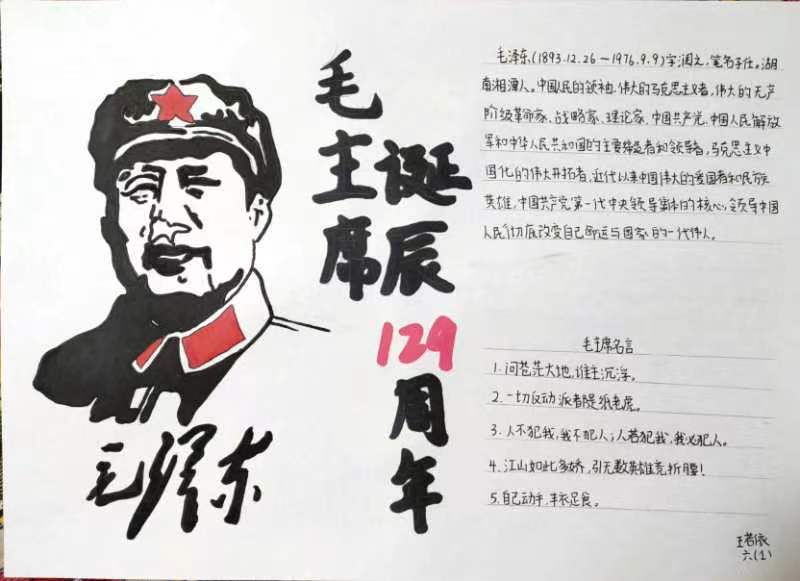 毛主席
诞辰129周年
毛泽东
毛泽东(1893.12.26—1976.9.9)字润之,笔名子任。湖
南湘潭人。中国人民的领袖,伟大的马克思主义者,伟大的无产
阶级革命家、战略家、理论家,中国共产党、中国人民解放
军和中华人民共和国的主要缔造者和领导者,马克思主义中
国化的伟大开拓者,近代以来中国伟大的爱国者和民族
英雄,中国共产党第一代中央领导集体的核心,领导中国
人民彻底改变自己命运与国家的一代伟人。
毛主席名言
1.问苍茫大地,谁主沉浮。
2.一切反动派都是纸老虎。
3.人不犯我,我不犯人;人若犯我,我必犯人。
4.江山如此多娇,引无数英雄竞折腰!
5.自己动手,丰衣足食。
王若依
六(1)